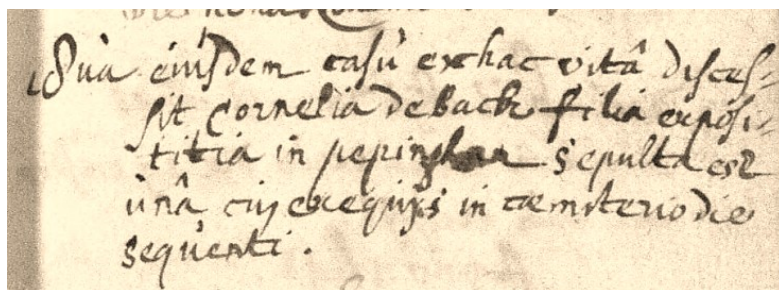 18va eiusdem casu ex hac vitâ disces-
sit Cornelia de Backe filia exposi-
titia in pepinghen sepulta est
unâ cuj exequijs in cœmiterio die
sequenti.